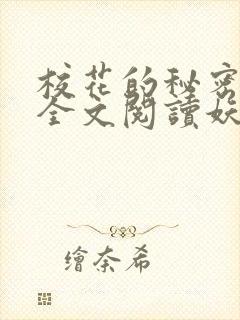 校花的秘密
全文閱讀妖
繪奈希